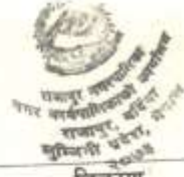 राजापुर नगरपालिका
नगर कार्यपालिकाको कार्यालय
राजापुर, बर्दिया
लुम्बिनी प्रदेश, नेपाल
२०७३